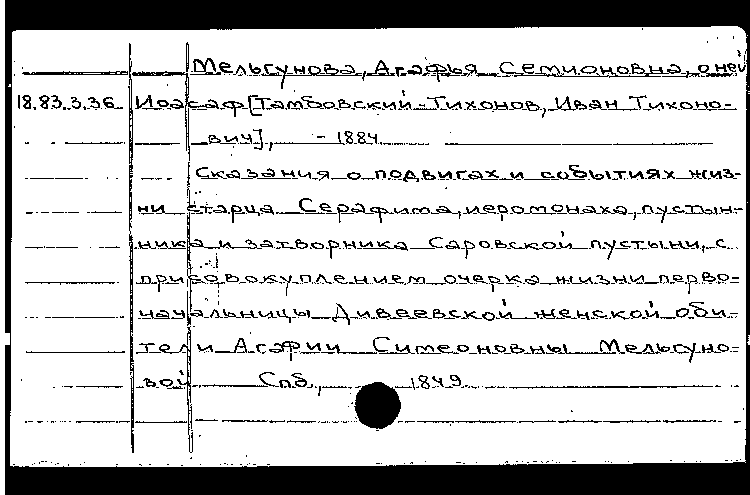 Мельгунова, Агафья Семионовна, о ней
18.83.3.36 Иоасаф [Тамбовский-Тихонов, Иван Тихоно-
вич], - 1884
Сказания о подвигах и событиях жиз-
ни старца Серафима, иеромонаха, пустын-
ника и затворника Саровской пустыни, с
присовокуплением очерка жизни перво-
начальницы Дивеевской женской оби-
тели Агафии Симеоновны Мельгуно-
вой Спб., 1849